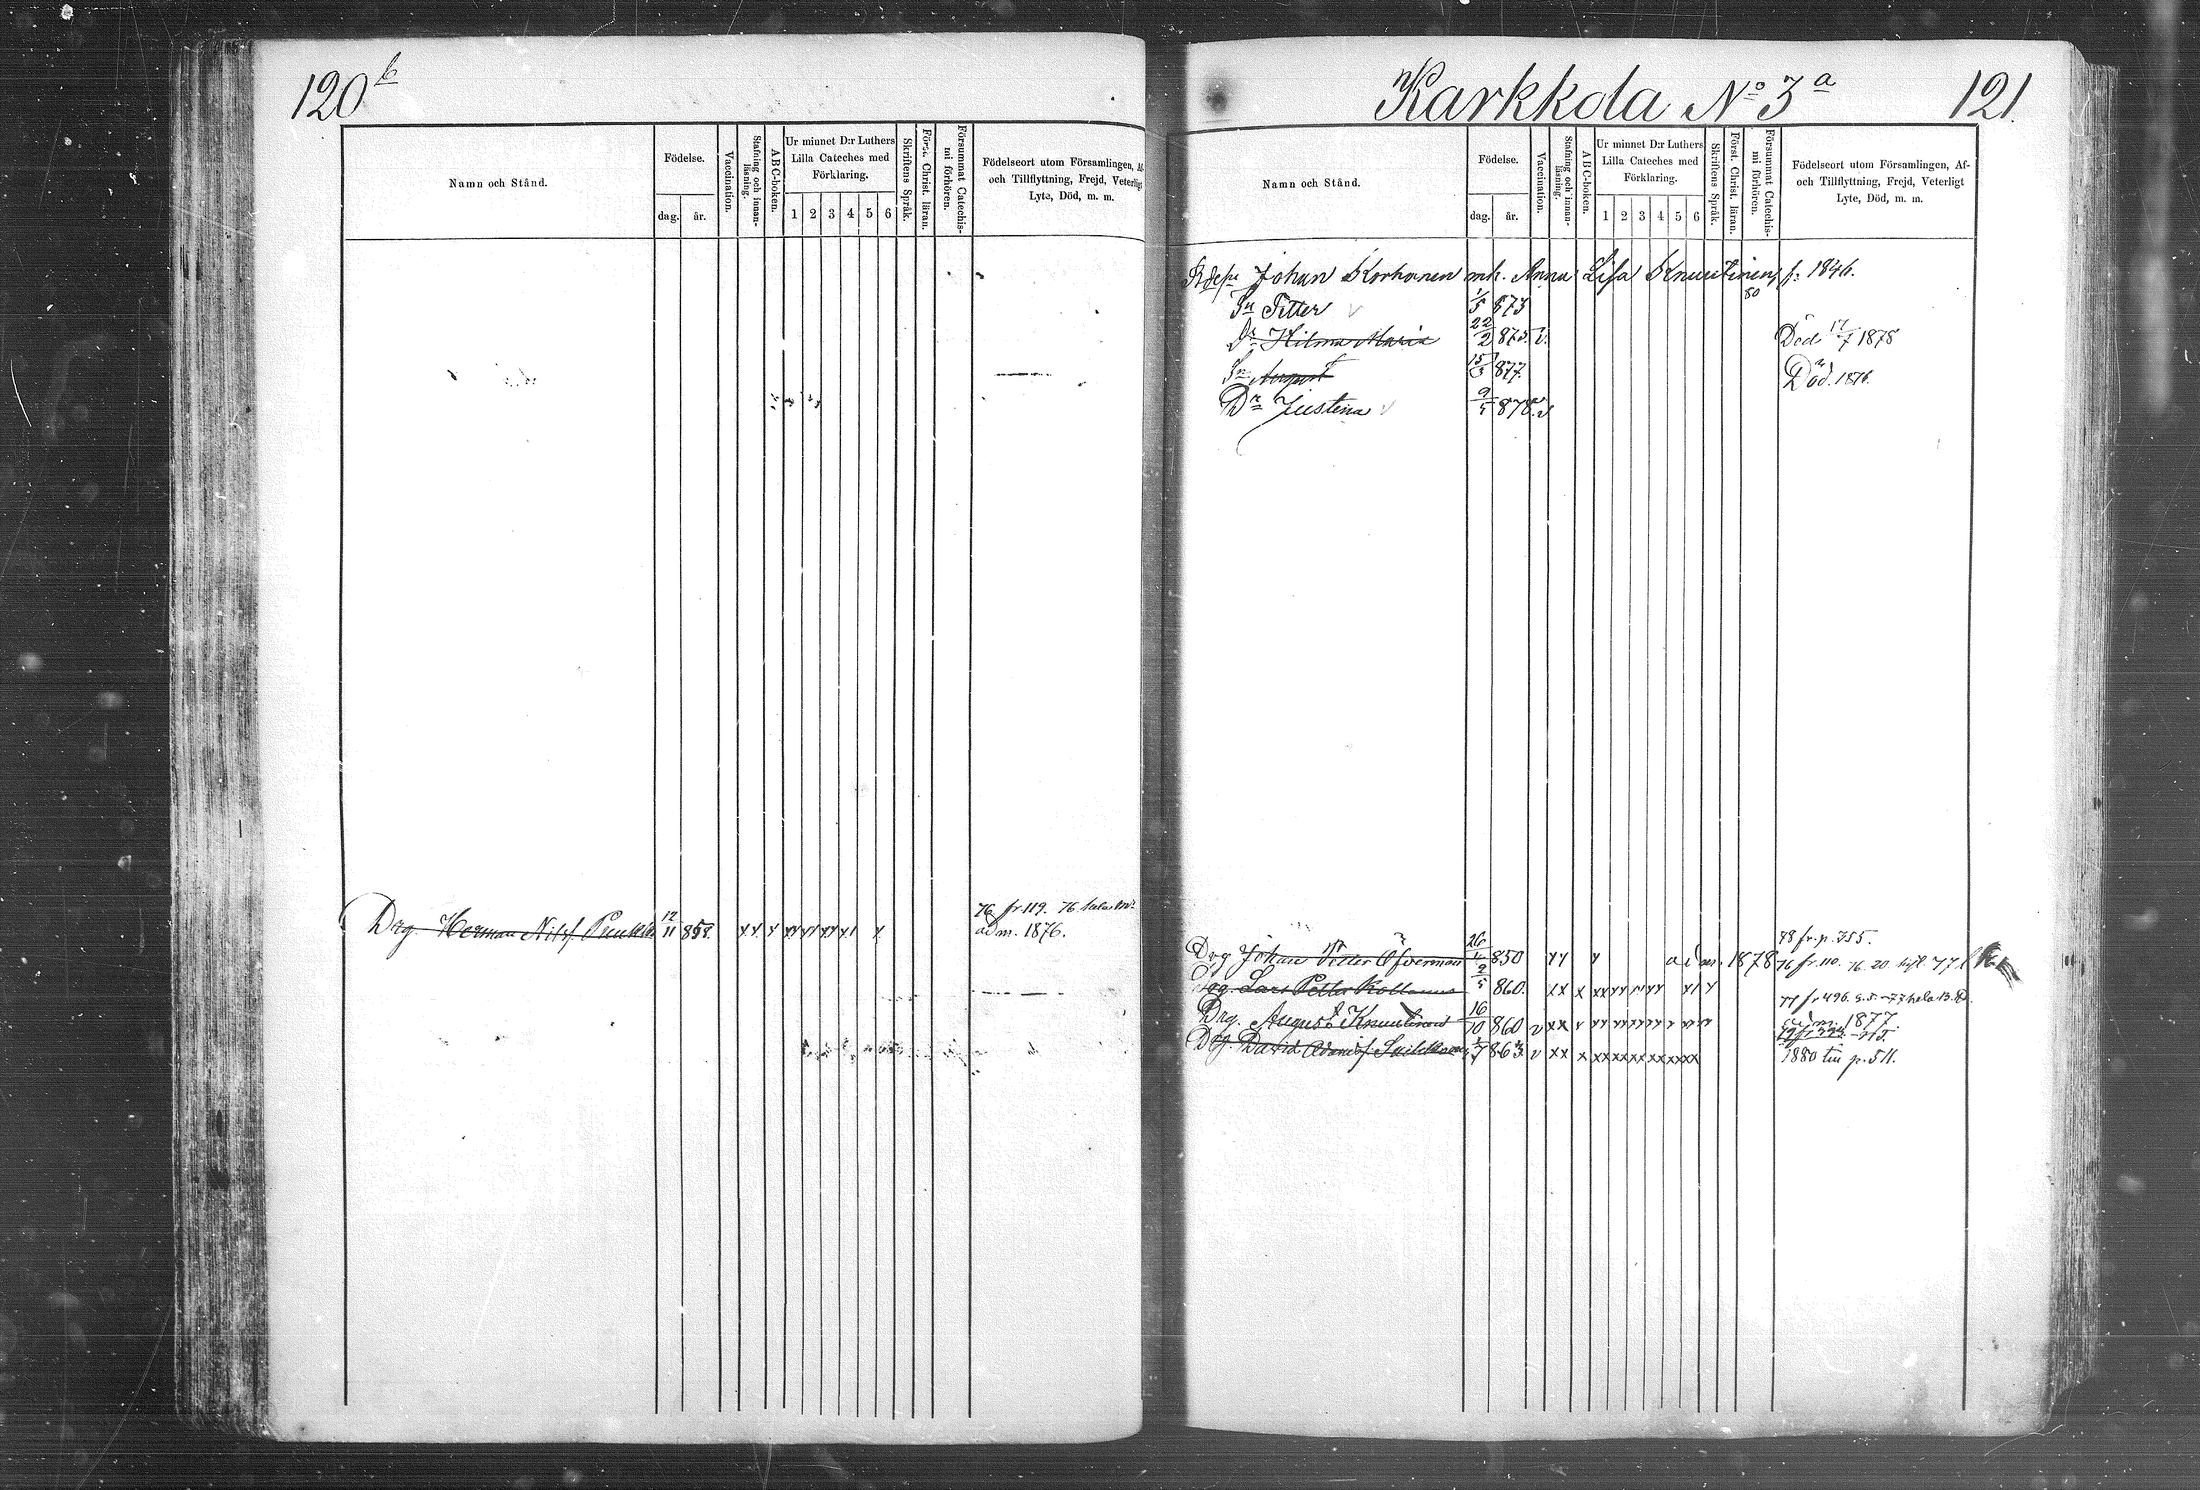 120 b
Namn och Stånd.
Födelse.
dag. år.
Vaccination.
Stafning och innanläsning.
ABC-boken.
Ur minnet D:r Luthers
Lilla Cateches med
Förklaring.
1 2 3 4 5 6
Skriftens Språk.
Först. Christ. läran.
Försummat Catechismi förhören.
Födelseort utom Församlingen, Af-
och Tillflyttning, Frejd, Veterligt
Lyte, Död, m. m.
76 fr. 119.
Drg. Herman Nilsf. 12/11 858. adm. 1876.
Karkkola No 3 a 121.
Namn och Stånd.
Födelse.
dag. år.
Vaccination.
Stafning och innanläsning.
ABC-boken.
Ur minnet D:r Luthers
Lilla Cateches med
Förklaring.
1 2 3 4 5 6
Skriftens Språk.
Först. Christ. läran.
Försummat Catechismi förhören.
Födelseort utom Församlingen, Af-
och Tillflyttning, Frejd, Veterligt
Lyte, Död, m. m.
Johan Korhonen mh. Anna Lisa Knuutinen f: 1846.
80
Sn Petter 1/5 873
Dr Hilma Maria 22/2 875. v. Död 17/7 1878
Sn August 15/5 877. Död. 1878.
Dr Justina 9/5 878. v
78 fr. p. 355.
Drg Johan Petter Öfverman 26/4 850 xx x adm. 1878 76 fr. 110.
Lars Petter 2/5 860. xx x xx
77 fr 496.
Drg. August Knuutinen 16/10 860 v xx x adm. 1877.
Drg. David Adamsf. 1/7 863. v xx x xxxxxxxxxxxx 1880 till p. 511.